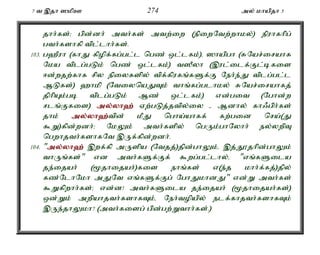 7 வ இதா ஸமிஊ 274 அல் மாயிதா 5
தார்கள்; பின்னர் அவர்கள் அவற்றை (நிறைவேற்றாமல்) நிராகரிப்
பவர்களாகி விட்டார்கள்.
103. பஹீரா (காது கிழிக்கப்பட்ட பெண் ஒட்டகம்), ஸாயிபா (சுயேச்சையாக
மேய விடப்படும் பெண் ஒட்டகம்) வஸீலா (இரட்டைக்குட்டிகளை
ஈன்றதற்காக சில நிலைகளில் விக்கிரகங்களுக்கு நேர்ந்து விடப்பட்ட
ஆடுகள்) ஹாமி (வேலையெதுவும் வாங்கப்படாமல் சுயேச்சையாகத்
திரியும்படி விடப்படும் ஆண் ஒட்டகம்) என்பவை (போன்ற
சடங்குகளை) அல்லாஹ் ஏற்படுத்தவில்லை - ஆனால் காஃபிர்கள்
தாம் அல்லாஹ்வின் மீது பொய்யாகக் கற்பனை செய்(து
கூறு)கின்றனர்; மேலும் அவர்களில் பெரும்பாலோர் நல்லறிவு
பெறாதவர்களாகவே இருக்கின்றனர்.
104. "அல்லாஹ் இறக்கி அருளிய (வேதத்)தின்பாலும், இத்தூதரின்பாலும்
வாருங்கள்" என அவர்களுக்குக் கூறப்பட்டால், "எங்களுடைய
தந்தையர் (மூதாதையர்)களை நாங்கள் எ(ந்த மார்க்கத்)தில்
கண்டோமோ அதுவே எங்களுக்குப் போதுமானது" என்று அவர்கள்
கூறுகிறார்கள்; என்ன! அவர்களுடைய தந்தையர் (மூதாதையர்கள்)
ஒன்றும் அறியாதவர்களாகவும், நேர்வழியில் நடக்காதவர்களாகவும்
இருந்தாலுமா? (அவர்களைப் பின்பற்றுவார்கள்.)